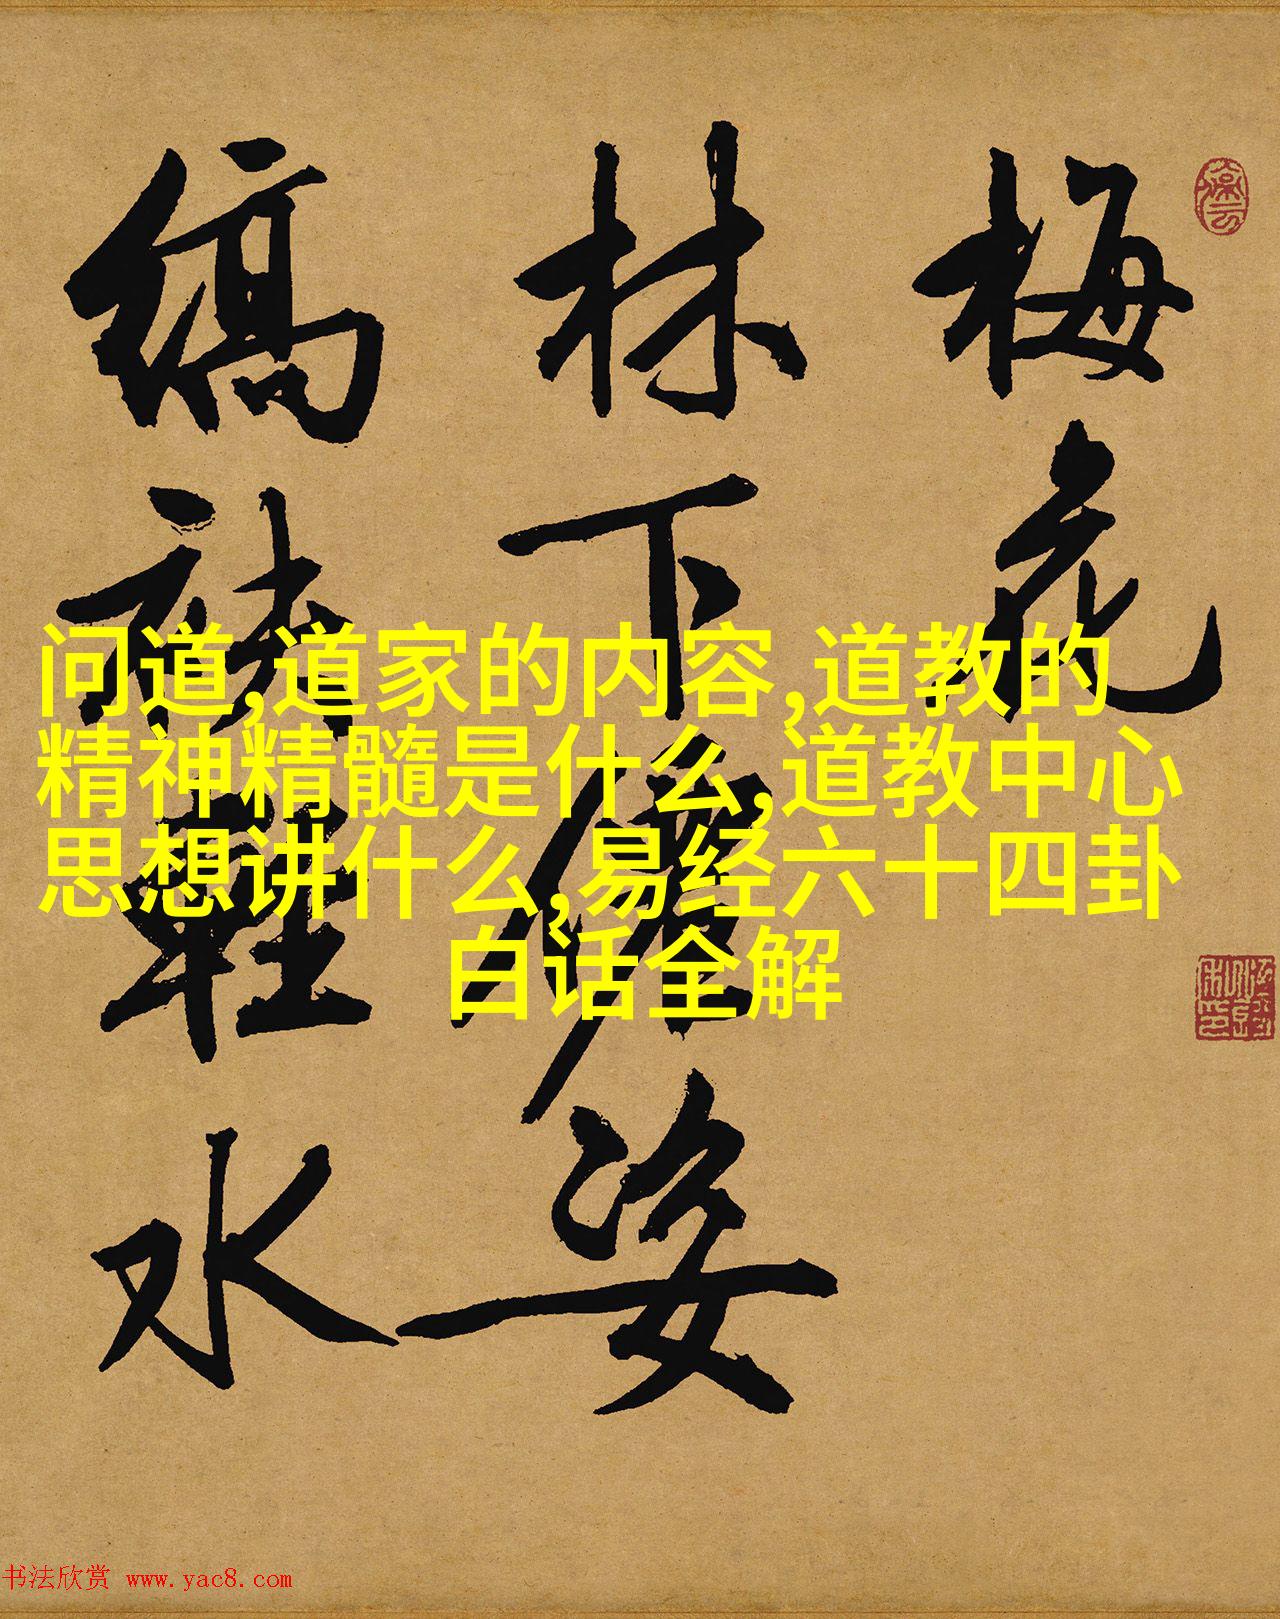 梅花
林下僊姿
縞袂輕水
问道,道家的内容,道教的
精神精髓是什么,道教中心
思想讲什么,易经六十四卦
白话全解
书法欣赏 www.yac8.com